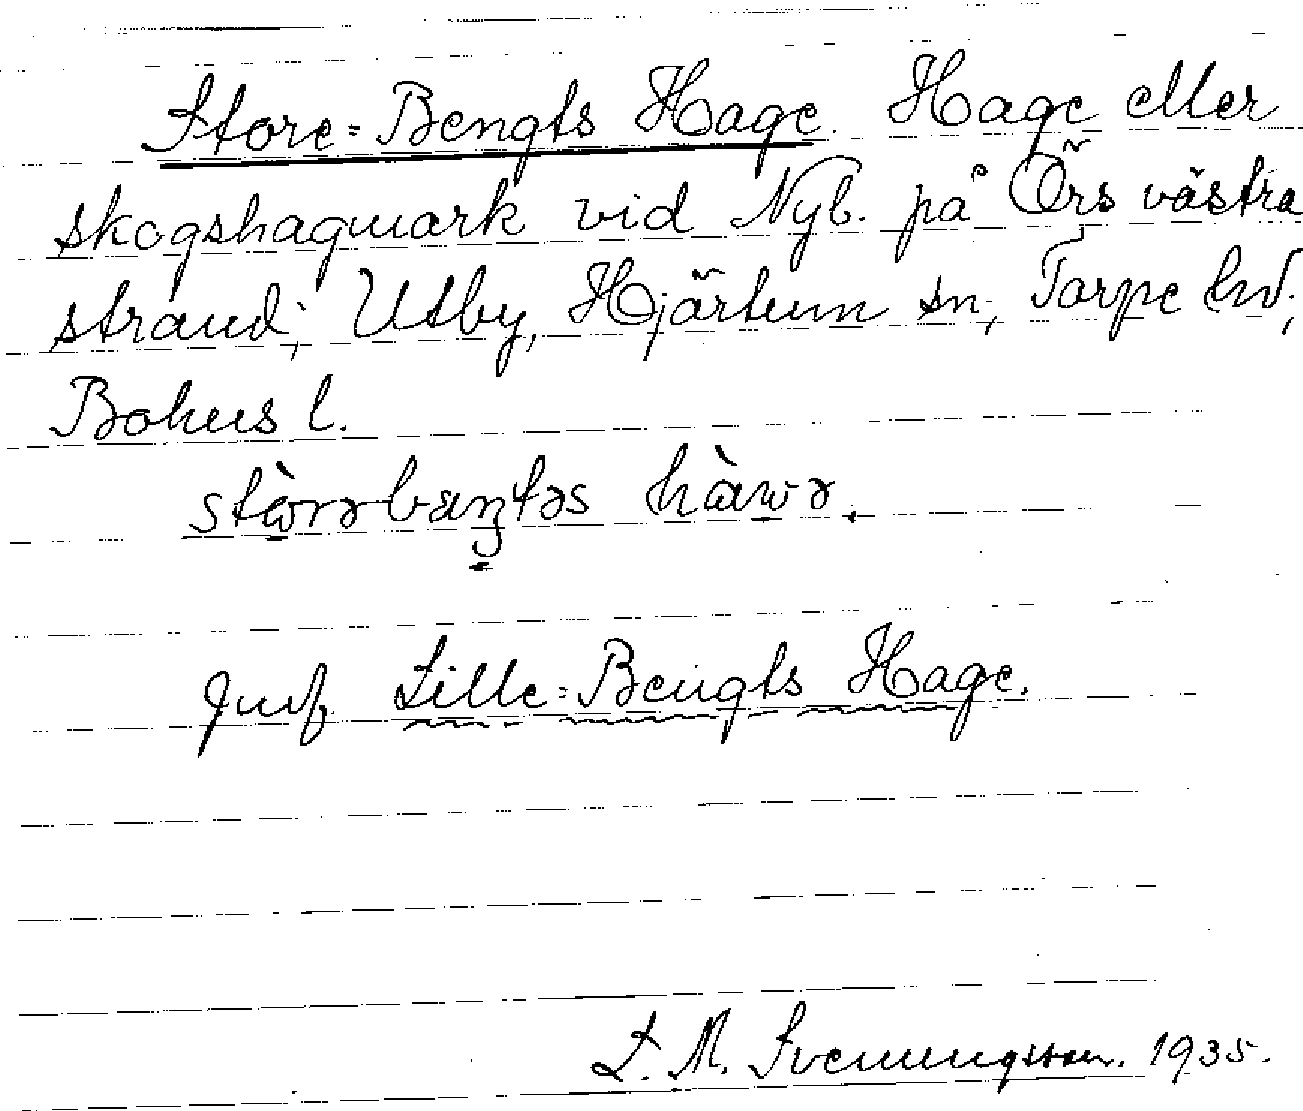 Store-Bengts Hage. Hage eller
skogshagmark vid Nyb. på Örs västra
strand; Utby, Hjärtum sn, Torpe hd,
Bohus l.
Jmf Lille-Bengts Hage.
L. M. Svenungsson. 1935.